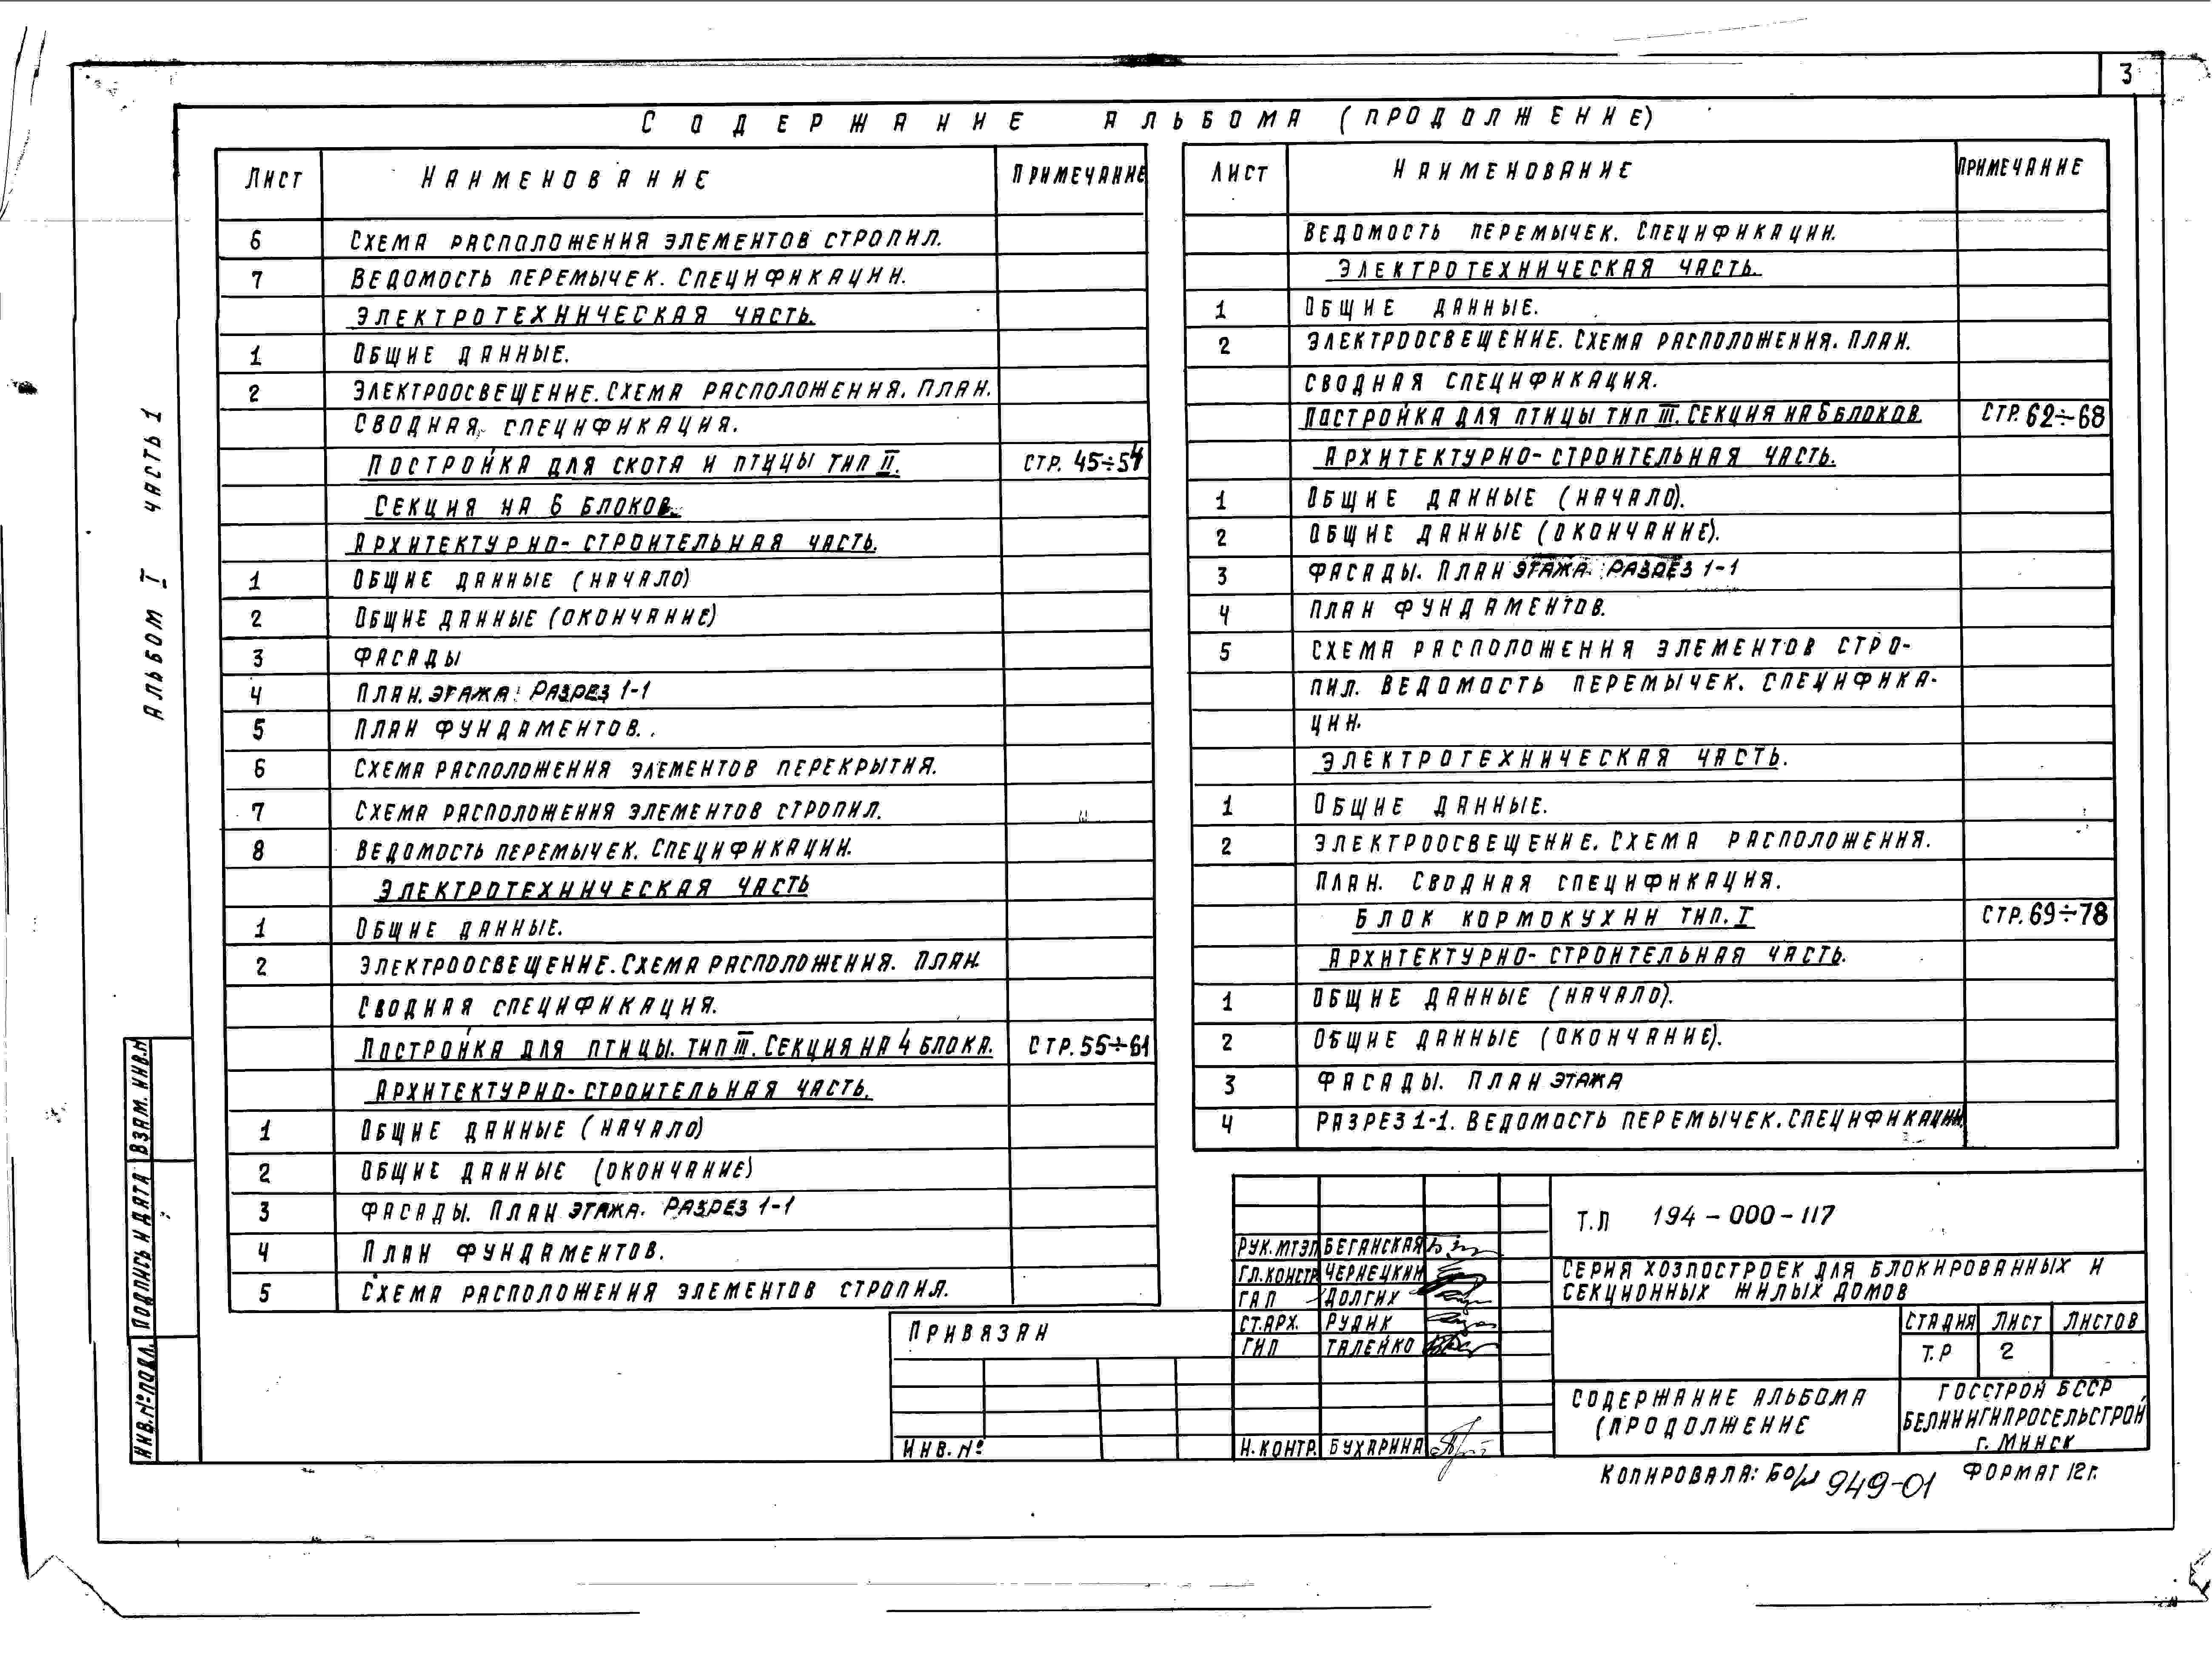 3
СОДЕРЖАНИЕ АЛЬБОМА (ПРОДОЛЖЕНИЕ)
ЛИСТ НАИМЕНОВАНИЕ ПРИМЕЧАНИЕ
6 СХЕМА РАСПОЛОЖЕНИЯ ЭЛЕМЕНТОВ СТРОПИЛ.
7 ВЕДОМОСТЬ ПЕРЕМЫЧЕК. СПЕЦИФИКАЦИИ.
ЭЛЕКТРОТЕХНИЧЕСКАЯ ЧАСТЬ.
1 ОБЩИЕ ДАННЫЕ.
2 ЭЛЕКТРООСВЕЩЕНИЕ. СХЕМА РАСПОЛОЖЕНИЯ. ПЛАН.
СВОДНАЯ СПЕЦИФИКАЦИЯ.
ПОСТРОЙКА ДЛЯ СКОТА И ПТИЦЫ ТИП II. СТР. 45÷54
СЕКЦИЯ НА 6 БЛОКОВ.
АРХИТЕКТУРНО-СТРОИТЕЛЬНАЯ ЧАСТЬ.
1 ОБЩИЕ ДАННЫЕ (НАЧАЛО)
2 ОБЩИЕ ДАННЫЕ (ОКОНЧАНИЕ)
3 ФАСАДЫ
4 ПЛАН ЭТАЖА. РАЗРЕЗ 1-1
5 ПЛАН ФУНДАМЕНТОВ.
6 СХЕМА РАСПОЛОЖЕНИЯ ЭЛЕМЕНТОВ ПЕРЕКРЫТИЯ.
7 СХЕМА РАСПОЛОЖЕНИЯ ЭЛЕМЕНТОВ СТРОПИЛ.
8 ВЕДОМОСТЬ ПЕРЕМЫЧЕК. СПЕЦИФИКАЦИИ.
ЭЛЕКТРОТЕХНИЧЕСКАЯ ЧАСТЬ
1 ОБЩИЕ ДАННЫЕ.
2 ЭЛЕКТРООСВЕЩЕНИЕ. СХЕМА РАСПОЛОЖЕНИЯ. ПЛАН.
СВОДНАЯ СПЕЦИФИКАЦИЯ.
ПОСТРОЙКА ДЛЯ ПТИЦЫ. ТИП III. СЕКЦИЯ НА 4 БЛОКА. СТР. 55÷61
АРХИТЕКТУРНО-СТРОИТЕЛЬНАЯ ЧАСТЬ.
1 ОБЩИЕ ДАННЫЕ (НАЧАЛО)
2 ОБЩИЕ ДАННЫЕ (ОКОНЧАНИЕ)
3 ФАСАДЫ. ПЛАН ЭТАЖА. РАЗРЕЗ 1-1
4 ПЛАН ФУНДАМЕНТОВ.
5 СХЕМА РАСПОЛОЖЕНИЯ ЭЛЕМЕНТОВ СТРОПИЛ.
ЛИСТ НАИМЕНОВАНИЕ ПРИМЕЧАНИЕ
ВЕДОМОСТЬ ПЕРЕМЫЧЕК. СПЕЦИФИКАЦИИ.
ЭЛЕКТРОТЕХНИЧЕСКАЯ ЧАСТЬ.
1 ОБЩИЕ ДАННЫЕ.
2 ЭЛЕКТРООСВЕЩЕНИЕ. СХЕМА РАСПОЛОЖЕНИЯ. ПЛАН.
СВОДНАЯ СПЕЦИФИКАЦИЯ.
ПОСТРОЙКА ДЛЯ ПТИЦЫ ТИП III. СЕКЦИЯ НА 6 БЛОКОВ. СТР. 62÷68
АРХИТЕКТУРНО-СТРОИТЕЛЬНАЯ ЧАСТЬ.
1 ОБЩИЕ ДАННЫЕ (НАЧАЛО).
2 ОБЩИЕ ДАННЫЕ (ОКОНЧАНИЕ).
3 ФАСАДЫ. ПЛАН ЭТАЖА. РАЗРЕЗ 1-1
4 ПЛАН ФУНДАМЕНТОВ.
5 СХЕМА РАСПОЛОЖЕНИЯ ЭЛЕМЕНТОВ СТРО-
ПИЛ. ВЕДОМОСТЬ ПЕРЕМЫЧЕК. СПЕЦИФИКА-
ЦИИ.
ЭЛЕКТРОТЕХНИЧЕСКАЯ ЧАСТЬ.
1 ОБЩИЕ ДАННЫЕ.
2 ЭЛЕКТРООСВЕЩЕНИЕ. СХЕМА РАСПОЛОЖЕНИЯ.
ПЛАН. СВОДНАЯ СПЕЦИФИКАЦИЯ.
БЛОК КОРМОКУХНИ ТИП. I СТР. 69÷78
АРХИТЕКТУРНО-СТРОИТЕЛЬНАЯ ЧАСТЬ.
1 ОБЩИЕ ДАННЫЕ (НАЧАЛО).
2 ОБЩИЕ ДАННЫЕ (ОКОНЧАНИЕ).
3 ФАСАДЫ. ПЛАН ЭТАЖА
4 РАЗРЕЗ 1-1. ВЕДОМОСТЬ ПЕРЕМЫЧЕК. СПЕЦИФИКАЦИИ.
АЛЬБОМ I ЧАСТЬ 1
ВЗАМ. ИНВ. №
ПОДПИСЬ И ДАТА
ИНВ. № ПОДЛ.
ПРИВЯЗАН
ИНВ. №
РУК. МТЭП БЕГАНСКАЯ
ГЛ. КОНСТР. ЧЕРНЕЦКИЙ
ГАП ДОЛГИХ
СТ. АРХ. РУДИК
ГИП ТАЛЕЙКО
Н. КОНТР. БУХАРИНА
Т.П 194-000-117
СЕРИЯ ХОЗПОСТРОЕК ДЛЯ БЛОКИРОВАННЫХ И
СЕКЦИОННЫХ ЖИЛЫХ ДОМОВ
СТАДИЯ ЛИСТ ЛИСТОВ
Т.Р 2
СОДЕРЖАНИЕ АЛЬБОМА
(ПРОДОЛЖЕНИЕ
ГОССТРОЙ БССР
БЕЛНИИГИПРОСЕЛЬСТРОЙ
Г. МИНСК
КОПИРОВАЛА: 949-01 ФОРМАТ 12г.